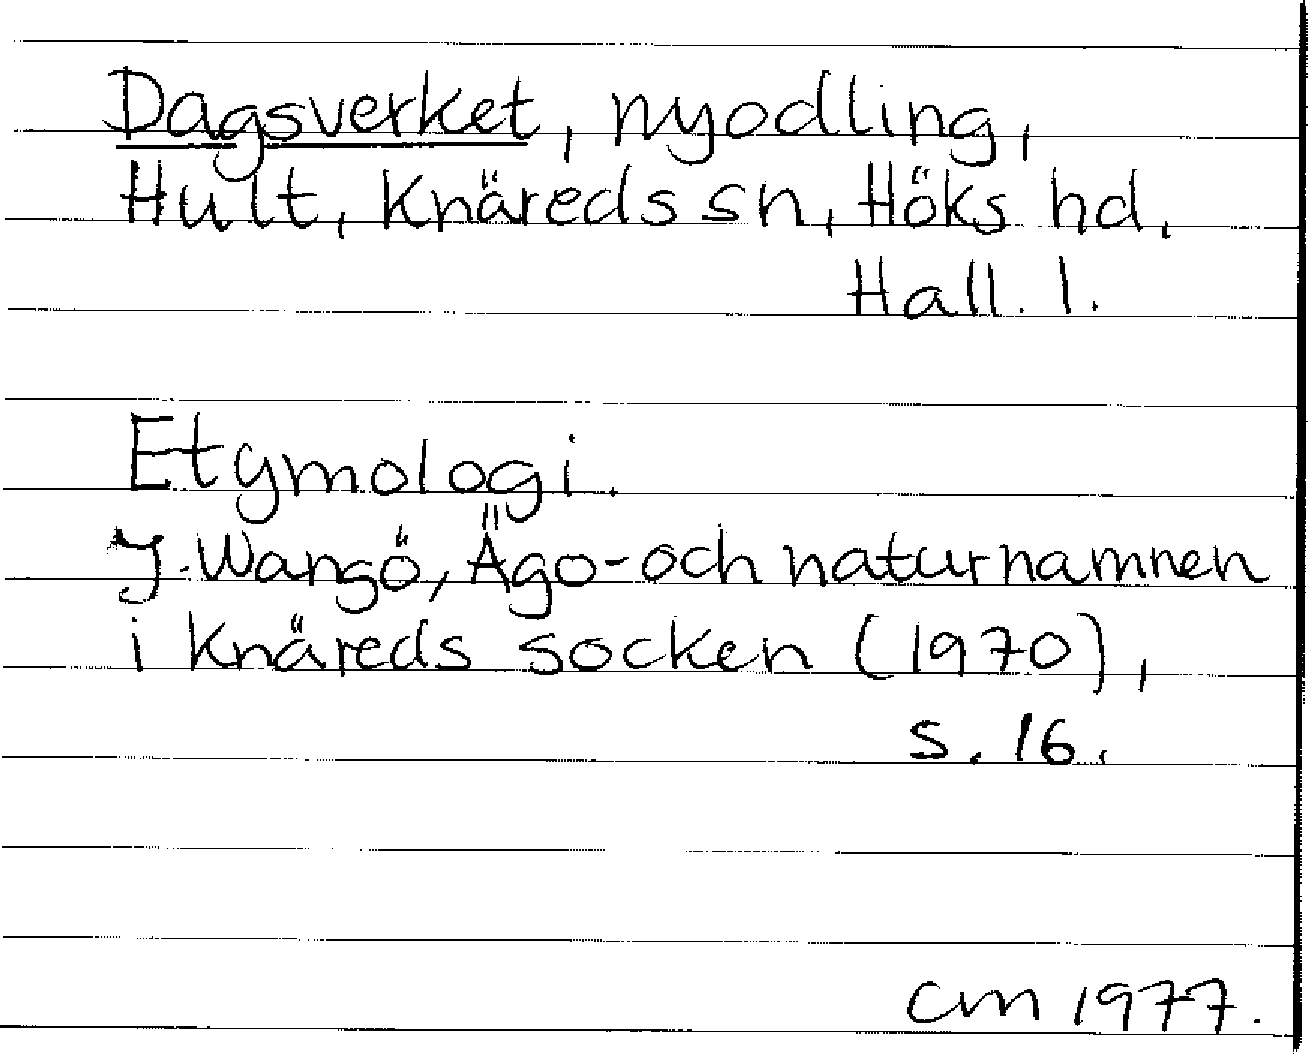 Dagsverket, nyodling,
Hult, Knäreds sn, Höks hd,
Hall. l.
Etymologi.
J. Wangö, Ägo- och naturnamnen
i Knäreds socken (1970),
s. 16.
CM 1977.